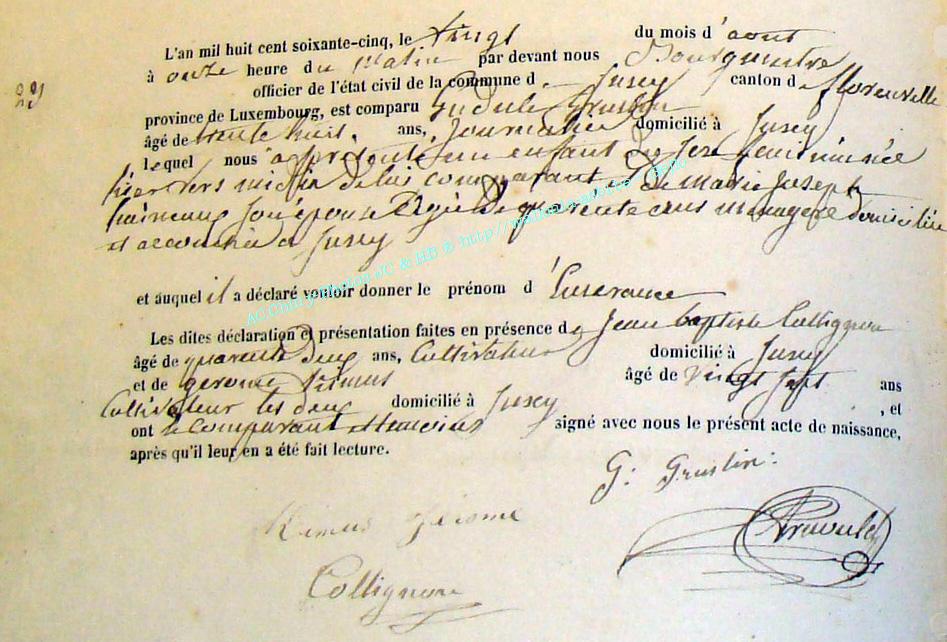 L'an mil huit cent soixante-cinq, le vingt du mois d'aout
à onze heure du matin par devant nous Bourgmestre
officier de l'état civil de la commune d. Jusey canton de florenville
province de Luxembourg, est comparu Gudule Gruslin
âgé de trente huit. ans, Journalier domicilié à Jusey
lequel nous a présenté un enfant de sexe feminin née
hier vers midi de lui comparant et de Marie Joseph
son épouse agée de quarante ans menagere domiciliée
et accouchée a Jusey
et auquel il a déclaré vouloir donner le prénom d'
Les dites déclaration et présentation faites en présence de Jean baptiste Collignon
âgé de quarante deux ans, Cultivateur domicilié à Jusey
et de gerome Rémus âgé de vingt sept ans
Cultivateur les deux domicilié à Jusey , et
ont le comparant et temoins signé avec nous le présent acte de naissance,
après qu'il leur en a été fait lecture.
G. Gruslin.
Rémus Jérome
Collignon